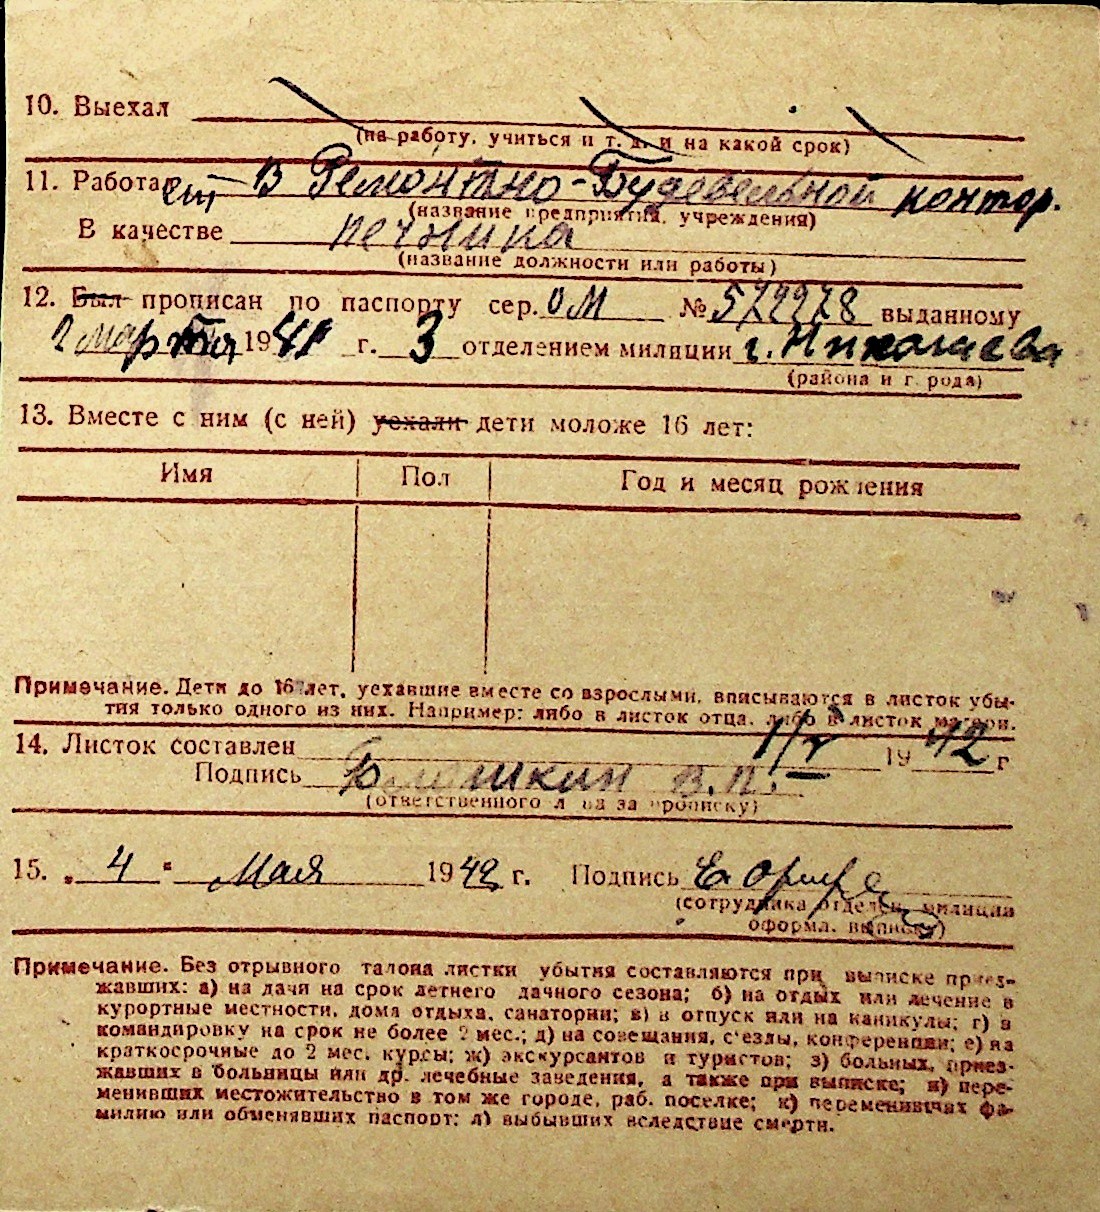 10. Выехал
(на работу, учиться и т. д. и на какой срок)
11. Работает в Ремонтно-Будевельной контор.
(название предприятия, учреждения)
В качестве печника
(название должности или работы)
12. Был прописан по паспорту сер. ОМ № 572978 выданному
2 Марта 1941 г. 3 отделением милиции г. Николаева
(района и города)
13. Вместе с ним (с ней) уехали дети моложе 16 лет:
Имя Пол Год и месяц рождения
Примечание. Дети до 16 лет, уехавшие вместе со взрослыми, вписываются в листок убы-
тия только одного из них. Например: либо в листок отца, либо в листок матери.
14. Листок составлен 1/V 1942 г
Подпись В.П.
(ответственного лица за прописку)
15. „4" Мая 1942 г. Подпись
(сотрудника отделен. милиции
оформл. выписку)
Примечание. Без отрывного талона листки убытия составляются при выписке приез-
жавших: а) на дачи на срок летнего дачного сезона; б) на отдых или лечение в
курортные местности, дома отдыха, санатории; в) в отпуск или на каникулы; г) в
командировку на срок не более 2 мес.; д) на совещания, с'езды, конференции; е) на
краткосрочные до 2 мес. курсы; ж) экскурсантов и туристов; з) больных, приез-
жавших в больницы или др. лечебные заведения, а также при выписке; и) пере-
менивших местожительство в том же городе, раб. поселке; к) переменивших фа-
милию или обменявших паспорт; л) выбывших вследствие смерти.